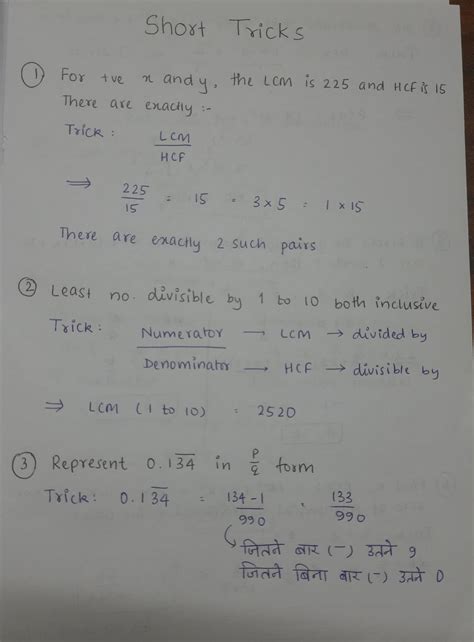 Short Tricks
① For +ve x and y, the LCM is 225 and HCF is 15
There are exactly :-
Trick : LCM / HCF
⇒ 225/15 = 15 = 3 × 5 = 1 × 15
There are exactly 2 such pairs
② Least no. divisible by 1 to 10 both inclusive
Trick : Numerator → LCM → divided by
Denominator → HCF → divisible by
⇒ LCM (1 to 10) = 2520
③ Represent 0.1\overline{34} in p/q form
Trick : 0.1\overline{34} = 134-1/990 = 133/990
जितने बार (-) उतने 9
जितने बिना बार (-) उतने 0